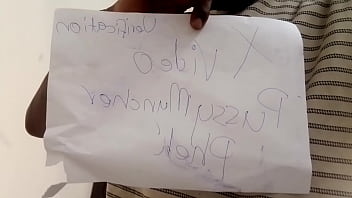 Verification
X Video
PussyMuncher
Pheli